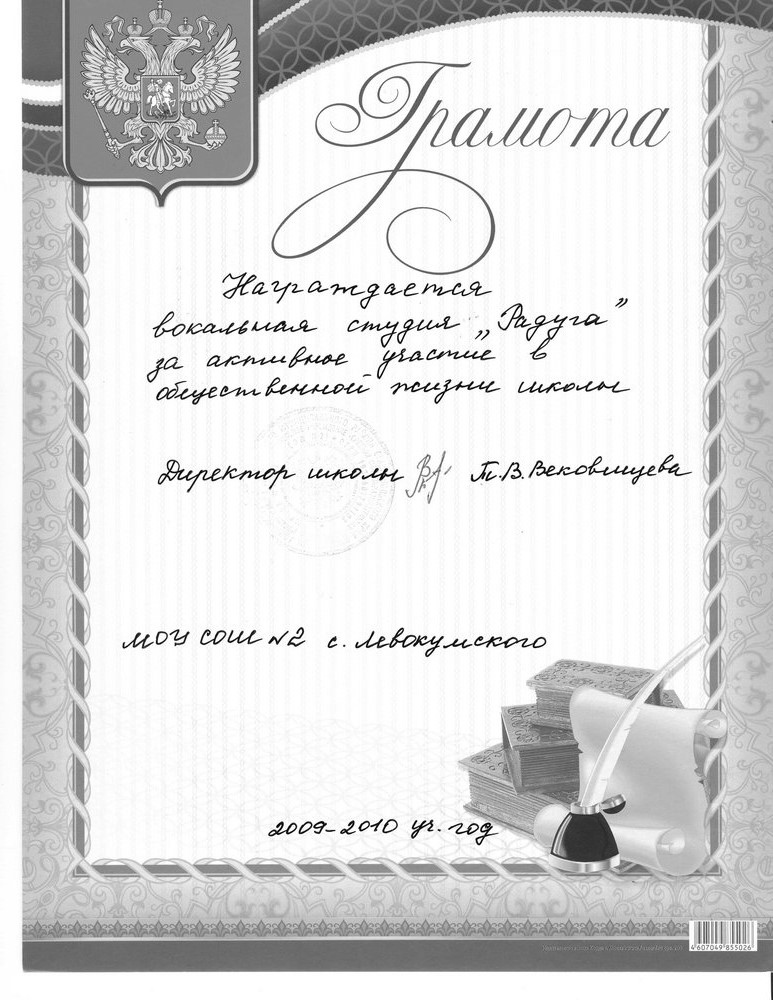 Грамота
Награждается
вокальная студия „Радуга”
за активное участие в
общественной жизни школы
Директор школы Т.В. Вековищева
МОУ СОШ №2 с. Левокумского
2009-2010 уч. год
4607049855026